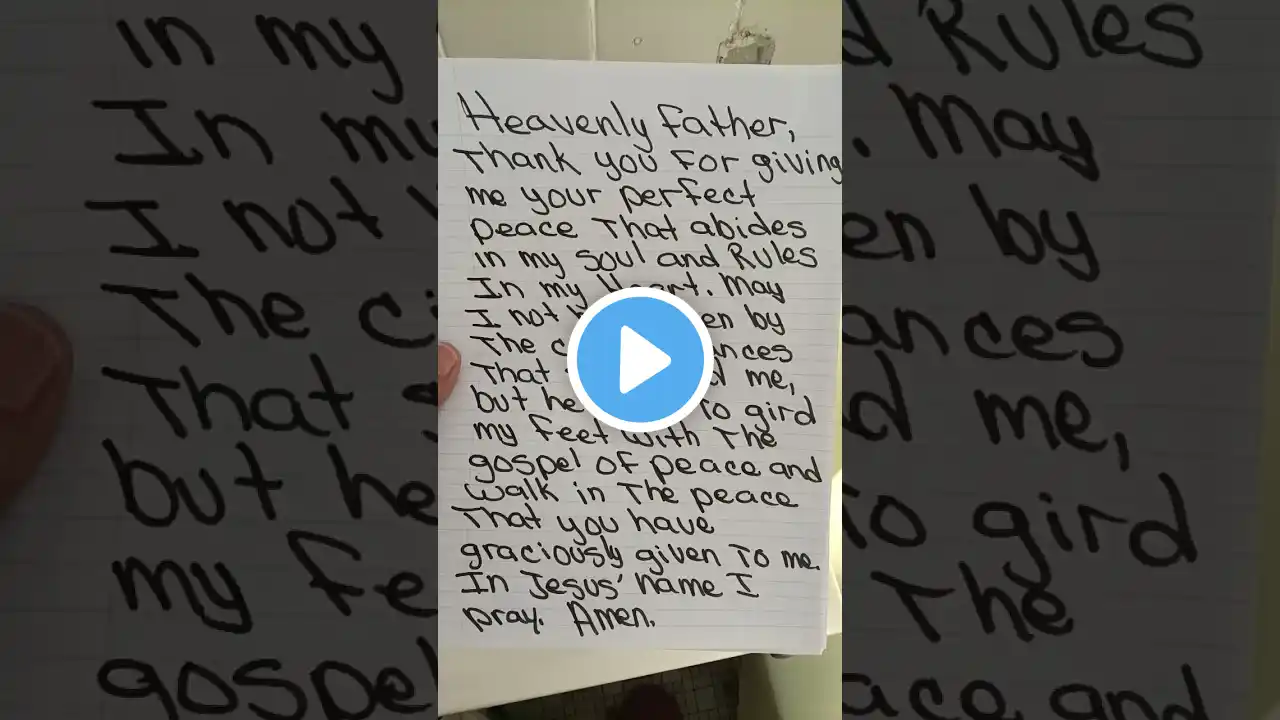 Heavenly Father,
Thank you For giving
me your perfect
peace That abides
in my soul and Rules
In my Heart. May
I not by
The
That me,
but To gird
my feet with The
gospel of peace and
walk in The peace
That you have
graciously given To me.
In Jesus' name I
pray. Amen.